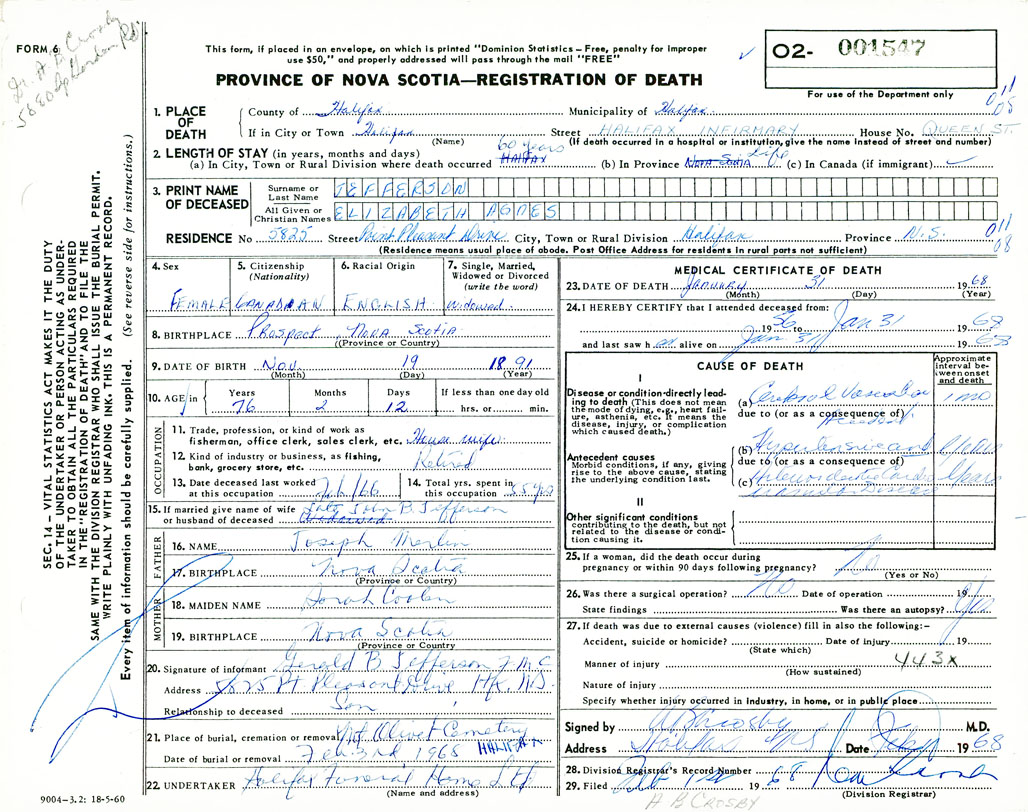 FORM 6
Dr. A B Crosby
This form, if placed in an envelope, on which is printed "Dominion Statistics – Free, penalty for improper
use $50," and properly addressed will pass through the mail "FREE"
02- 001547
For use of the Department only
PROVINCE OF NOVA SCOTIA—REGISTRATION OF DEATH
011
08
1. PLACE OF DEATH
County of Halifax Municipality of Halifax
If in City or Town Halifax Street HALIFAX INFIRMARY House No. QUEEN ST.
(Name) (If death occurred in a hospital or institution, give the name instead of street and number)
2. LENGTH OF STAY (in years, months and days) 60 years
(a) In City, Town or Rural Division where death occurred HALIFAX (b) In Province Nova Scotia Life (c) In Canada (if immigrant)
3. PRINT NAME OF DECEASED
Surname or Last Name JEFFERSON
All Given or Christian Names ELIZABETH AGNES
RESIDENCE No 5825 Street Point Pleasant Drive City, Town or Rural Division Halifax Province N.S.
011
08
(Residence means usual place of abode. Post Office Address for residents in rural parts not sufficient)
4. Sex FEMALE
5. Citizenship (Nationality) CANADIAN
6. Racial Origin ENGLISH
7. Single, Married, Widowed or Divorced (write the word) Widowed
8. BIRTHPLACE Prospect Nova Scotia
(Province or Country)
9. DATE OF BIRTH Nov. 19 1891
(Month) (Day) (Year)
10. AGE in Years Months Days If less than one day old
76 2 12 hrs. or min.
OCCUPATION
11. Trade, profession, or kind of work as
fisherman, office clerk, sales clerk, etc. House wife
12. Kind of industry or business, as fishing,
bank, grocery store, etc. Retired
13. Date deceased last worked
at this occupation
14. Total yrs. spent in
this occupation 55 yrs
15. If married give name of wife
or husband of deceased Late John B. Jefferson
FATHER
16. NAME Joseph Merlin
17. BIRTHPLACE Nova Scotia
(Province or Country)
MOTHER
18. MAIDEN NAME Sarah Coolen
19. BIRTHPLACE Nova Scotia
(Province or Country)
20. Signature of informant Gerald B Jefferson
Address 5825 Pt Pleasant Drive Hfx. NS
Relationship to deceased Son
21. Place of burial, cremation or removal Mt Olivet Cemetery
Date of burial or removal Feb 3rd 1968 HALIFAX
22. UNDERTAKER Halifax Funeral Home Ltd
(Name and address)
MEDICAL CERTIFICATE OF DEATH
23. DATE OF DEATH JANUARY 31 1968
(Month) (Day) (Year)
24. I HEREBY CERTIFY that I attended deceased from:
1956 to Jan 31 1968
and last saw her alive on Jan 31 1968
CAUSE OF DEATH
Approximate interval between onset and death
I
Disease or condition directly leading to death (This does not mean
the mode of dying, e.g., heart failure, asthenia, etc. It means the
disease, injury, or complication
which caused death.)
(a) Cerebral Vascular Accident 1 mo
due to (or as a consequence of)
Antecedent causes
Morbid conditions, if any, giving
rise to the above cause, stating
the underlying condition last.
(b) Hypertensive and years
due to (or as a consequence of)
(c) Arteriosclerotic Cardio vascular Disease years
II
Other significant conditions
contributing to the death, but not
related to the disease or condition causing it.
25. If a woman, did the death occur during
pregnancy or within 90 days following pregnancy? No
(Yes or No)
26. Was there a surgical operation? No Date of operation 19
State findings Was there an autopsy? Yes
27. If death was due to external causes (violence) fill in also the following:–
Accident, suicide or homicide? Date of injury 19
(State which)
Manner of injury 443X
(How sustained)
Nature of injury
Specify whether injury occurred in industry, in home, or in public place
Signed by AB Crosby M.D.
Address Halifax NS Date 1968
28. Division Registrar's Record Number
29. Filed Feb 1st 1968
(Division Registrar)
A B CROSBY
9004–3.2: 18-5-60
SEC. 14 – VITAL STATISTICS ACT MAKES IT THE DUTY
OF THE UNDERTAKER OR PERSON ACTING AS UNDERTAKER TO OBTAIN ALL THE PARTICULARS REQUIRED
IN THE "REGISTRATION OF DEATH" AND TO FILE THE
SAME WITH THE DIVISION REGISTRAR WHO SHALL ISSUE THE BURIAL PERMIT.
WRITE PLAINLY WITH UNFADING INK. THIS IS A PERMANENT RECORD.
Every item of information should be carefully supplied. (See reverse side for instructions.)